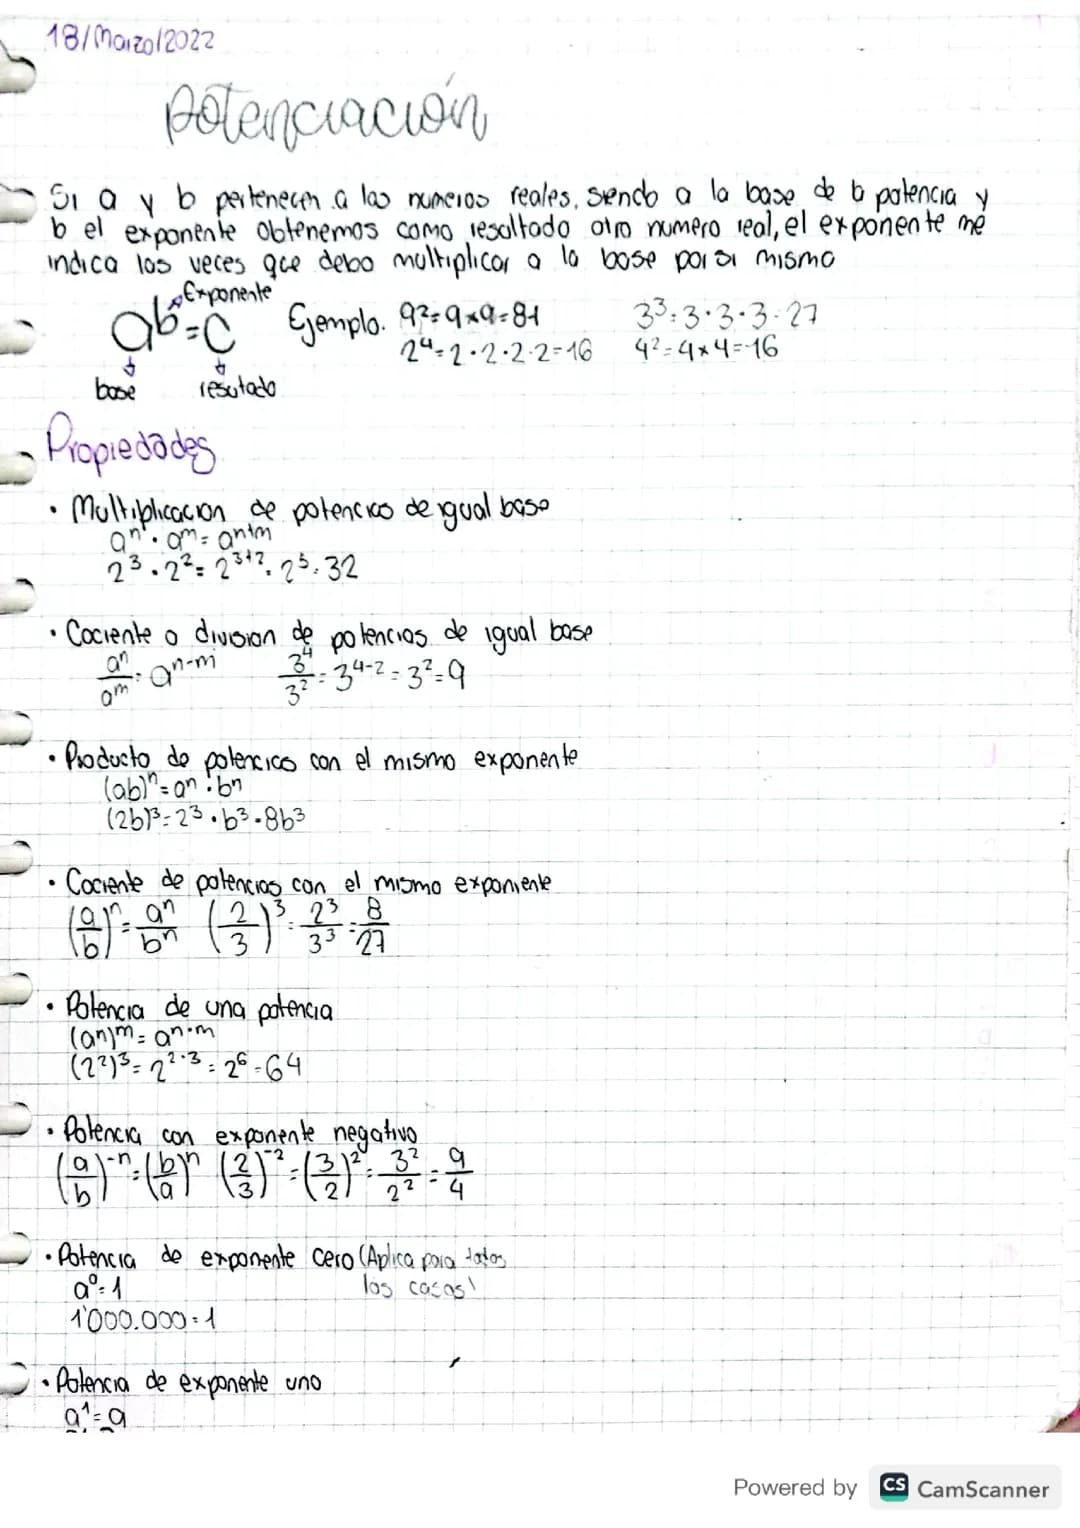 18/Marzo/2022
Potenciación
Si a y b pertenecen a los numeros reales, siendo a la base de la potencia y
b el exponente obtenemos como resultado otro numero real, el exponente me
indica las veces que debo multiplicar a la base por si misma
Exponente
a^b=c
base
resutado
Ejemplo. 9²=9×9=81
2⁴=2·2·2·2=16
3³=3·3·3=27
4²=4×4=16
Propiedades
• Multiplicacion de potencias de igual base
aⁿ·a^m=a^n+m
2³·2²=2³⁺²=2⁵=32
• Cociente o division de potencias de igual base
aⁿ/a^m=a^n-m 3⁴/3²=3⁴⁻²=3²=9
• Producto de potencias con el mismo exponente
(ab)ⁿ=aⁿ·bⁿ
(2b)³=2³·b³=8b³
• Cociente de potencias con el mismo exponente
(a/b)ⁿ=aⁿ/bⁿ (2/3)³=2³/3³=8/27
• Potencia de una potencia
(aⁿ)^m=a^n·m
(2²)³=2^2·3=2⁶=64
• Potencia con exponente negativo
(a/b)⁻ⁿ=(b/a)ⁿ (2/3)⁻²=(3/2)²=3²/2²=9/4
• Potencia de exponente cero (Aplica para todos
los casos)
a⁰=1
1'000.000=1
• Potencia de exponente uno
a¹=a
Powered by CS CamScanner